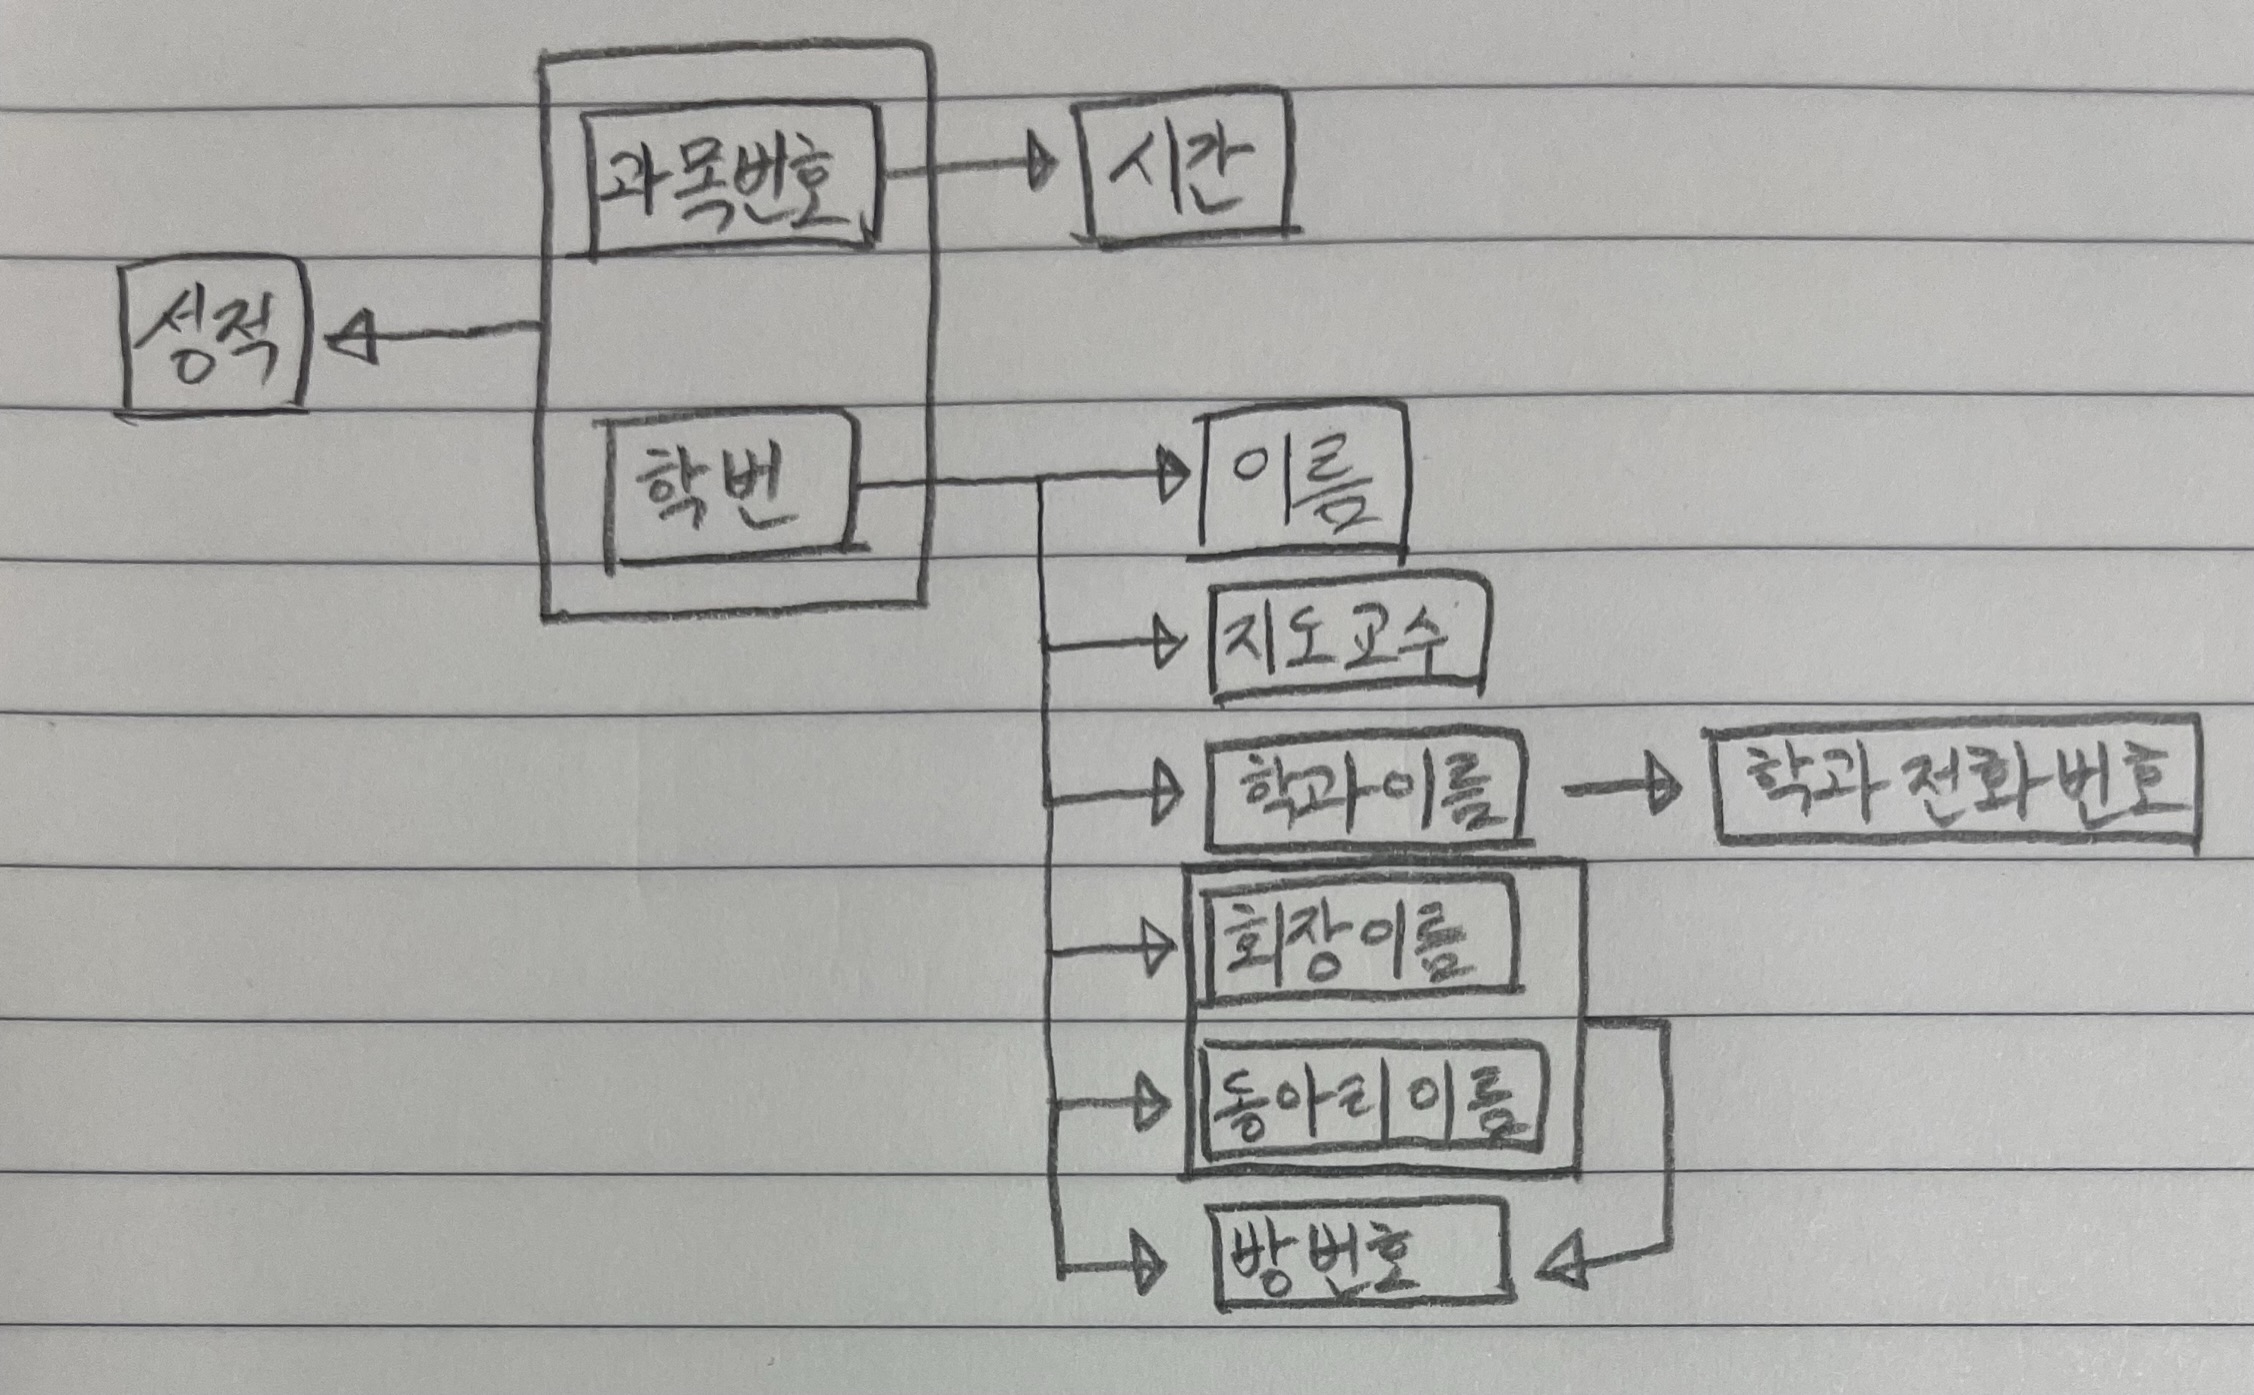 과목번호 시간
성적
학번 이름
지도교수
학과이름 학과 전화 번호
회장이름
동아리 이름
방 번호